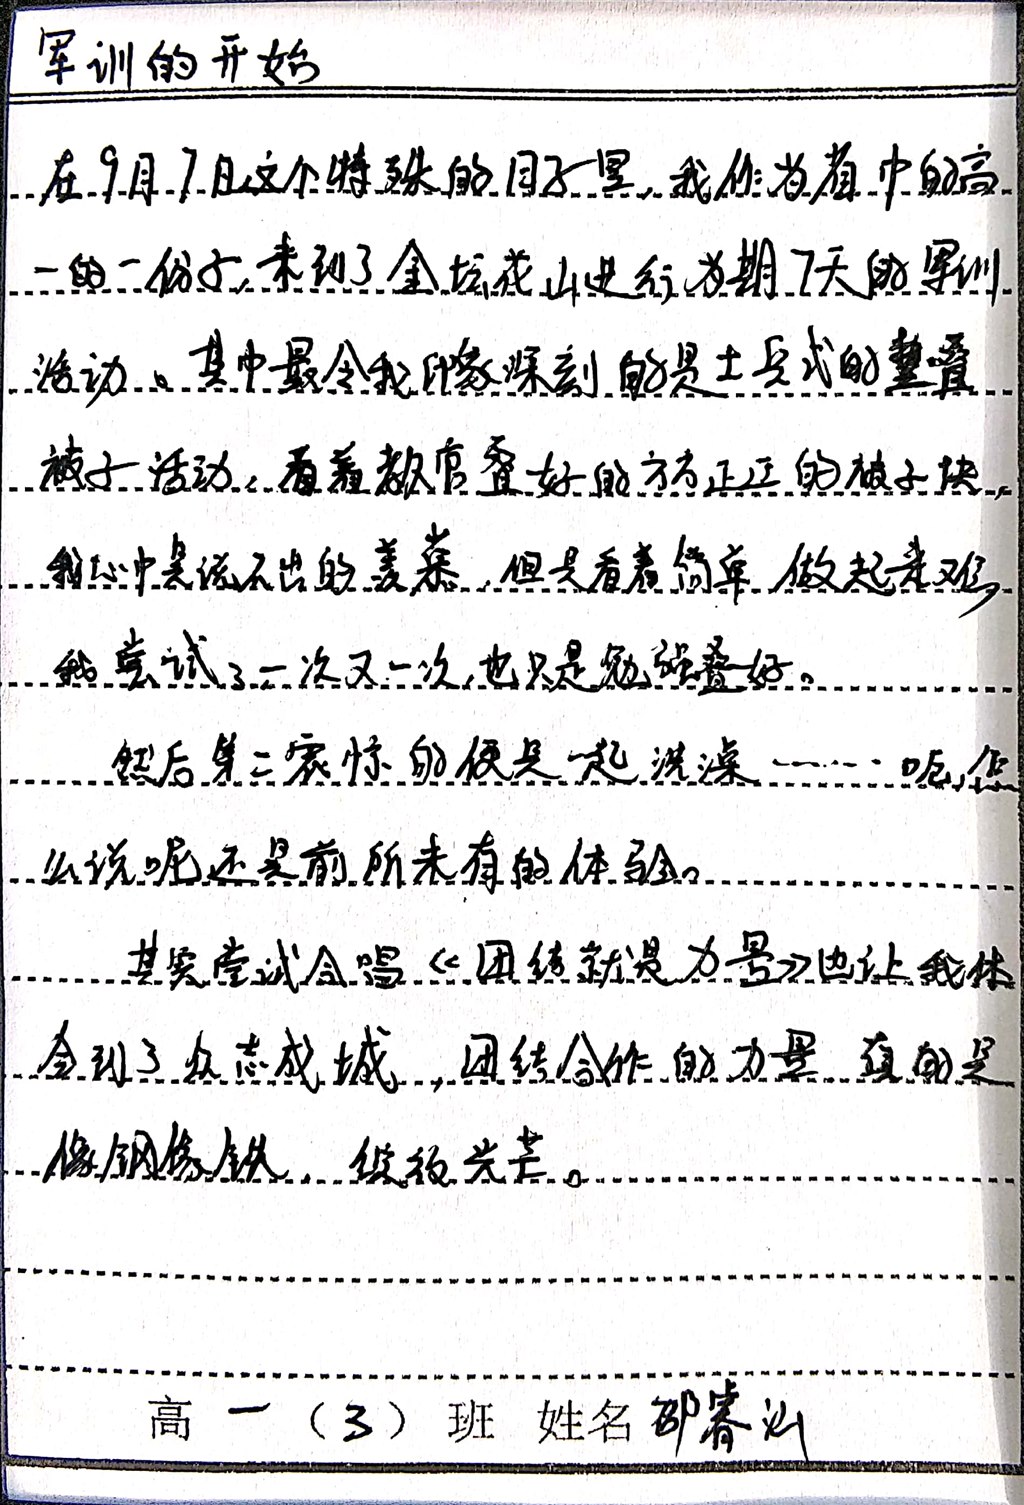 军训的开始
在9月7日这个特殊的日子里，我作为省中的高
一的一份子，来到了金坛茅山进行为期7天的军训
活动。其中最令我印象深刻的是士兵式的整叠
被子活动，看着教官叠好的方方正正的被子块，
我心中是说不出的羡慕，但是看着简单 做起来难，
我尝试了一次又一次，也只是勉强叠好。
然后第二震惊的便是一起洗澡………呃，怎
么说呢还是前所未有的体验。
其实尝试合唱《团结就是力量》也让我体
会到了众志成城，团结合作的力量，真的是
像钢像铁，绽放光芒。
高一（3）班 姓名邵睿